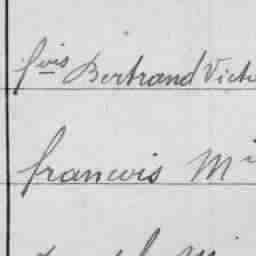 fois Bertrand Vict
francois Mi